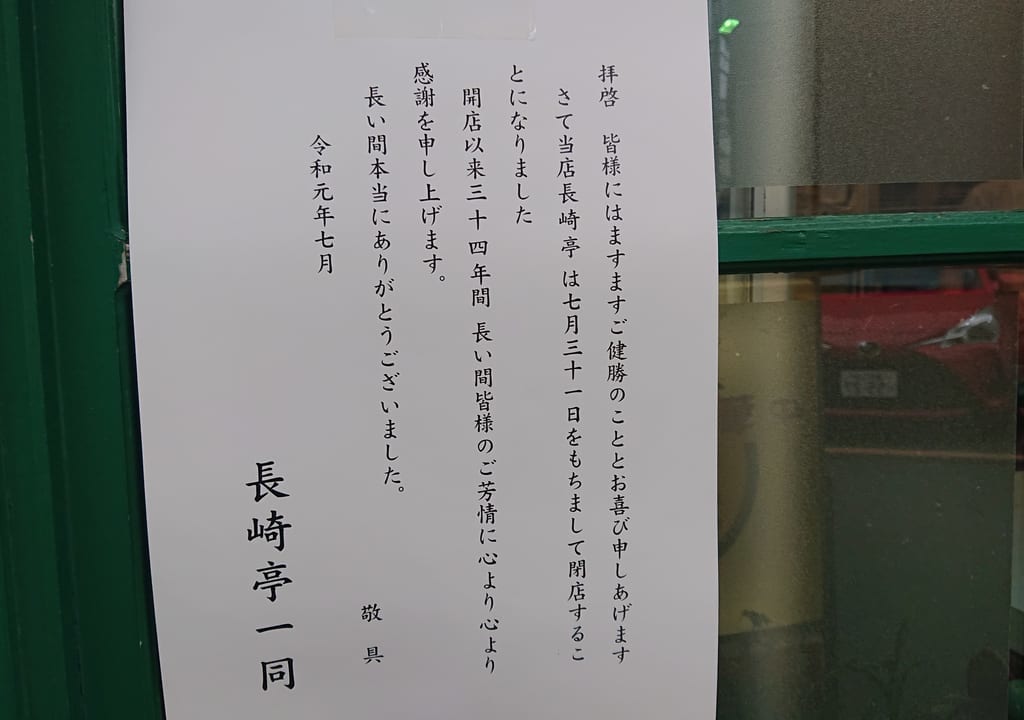 拝啓　皆様にはますますご健勝のこととお喜び申しあげます
さて当店長崎亭は七月三十一日をもちまして閉店するこ
とになりました
開店以来三十四年間長い間皆様のご芳情に心より心より
感謝を申し上げます。
長い間本当にありがとうございました。
敬具
令和元年七月
長崎亭一同